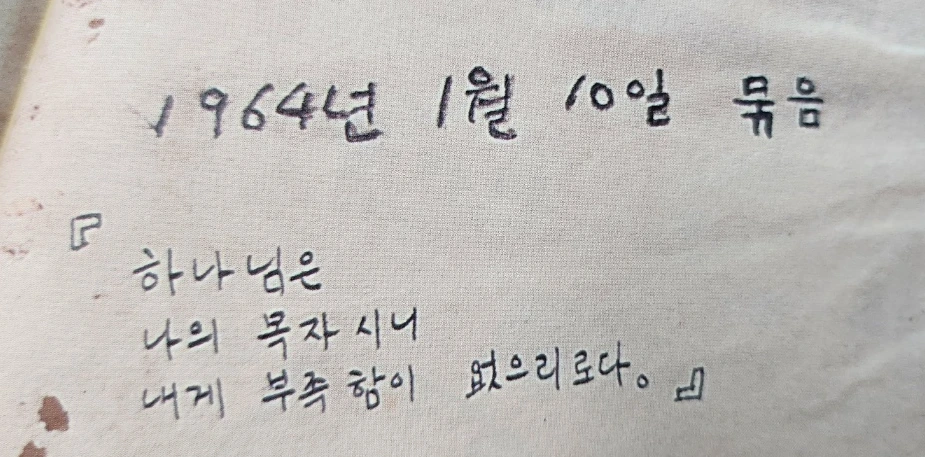 1964년 1월 10일 묶음
『
하나님은
나의 목자시니
내게 부족함이 없으리로다。』